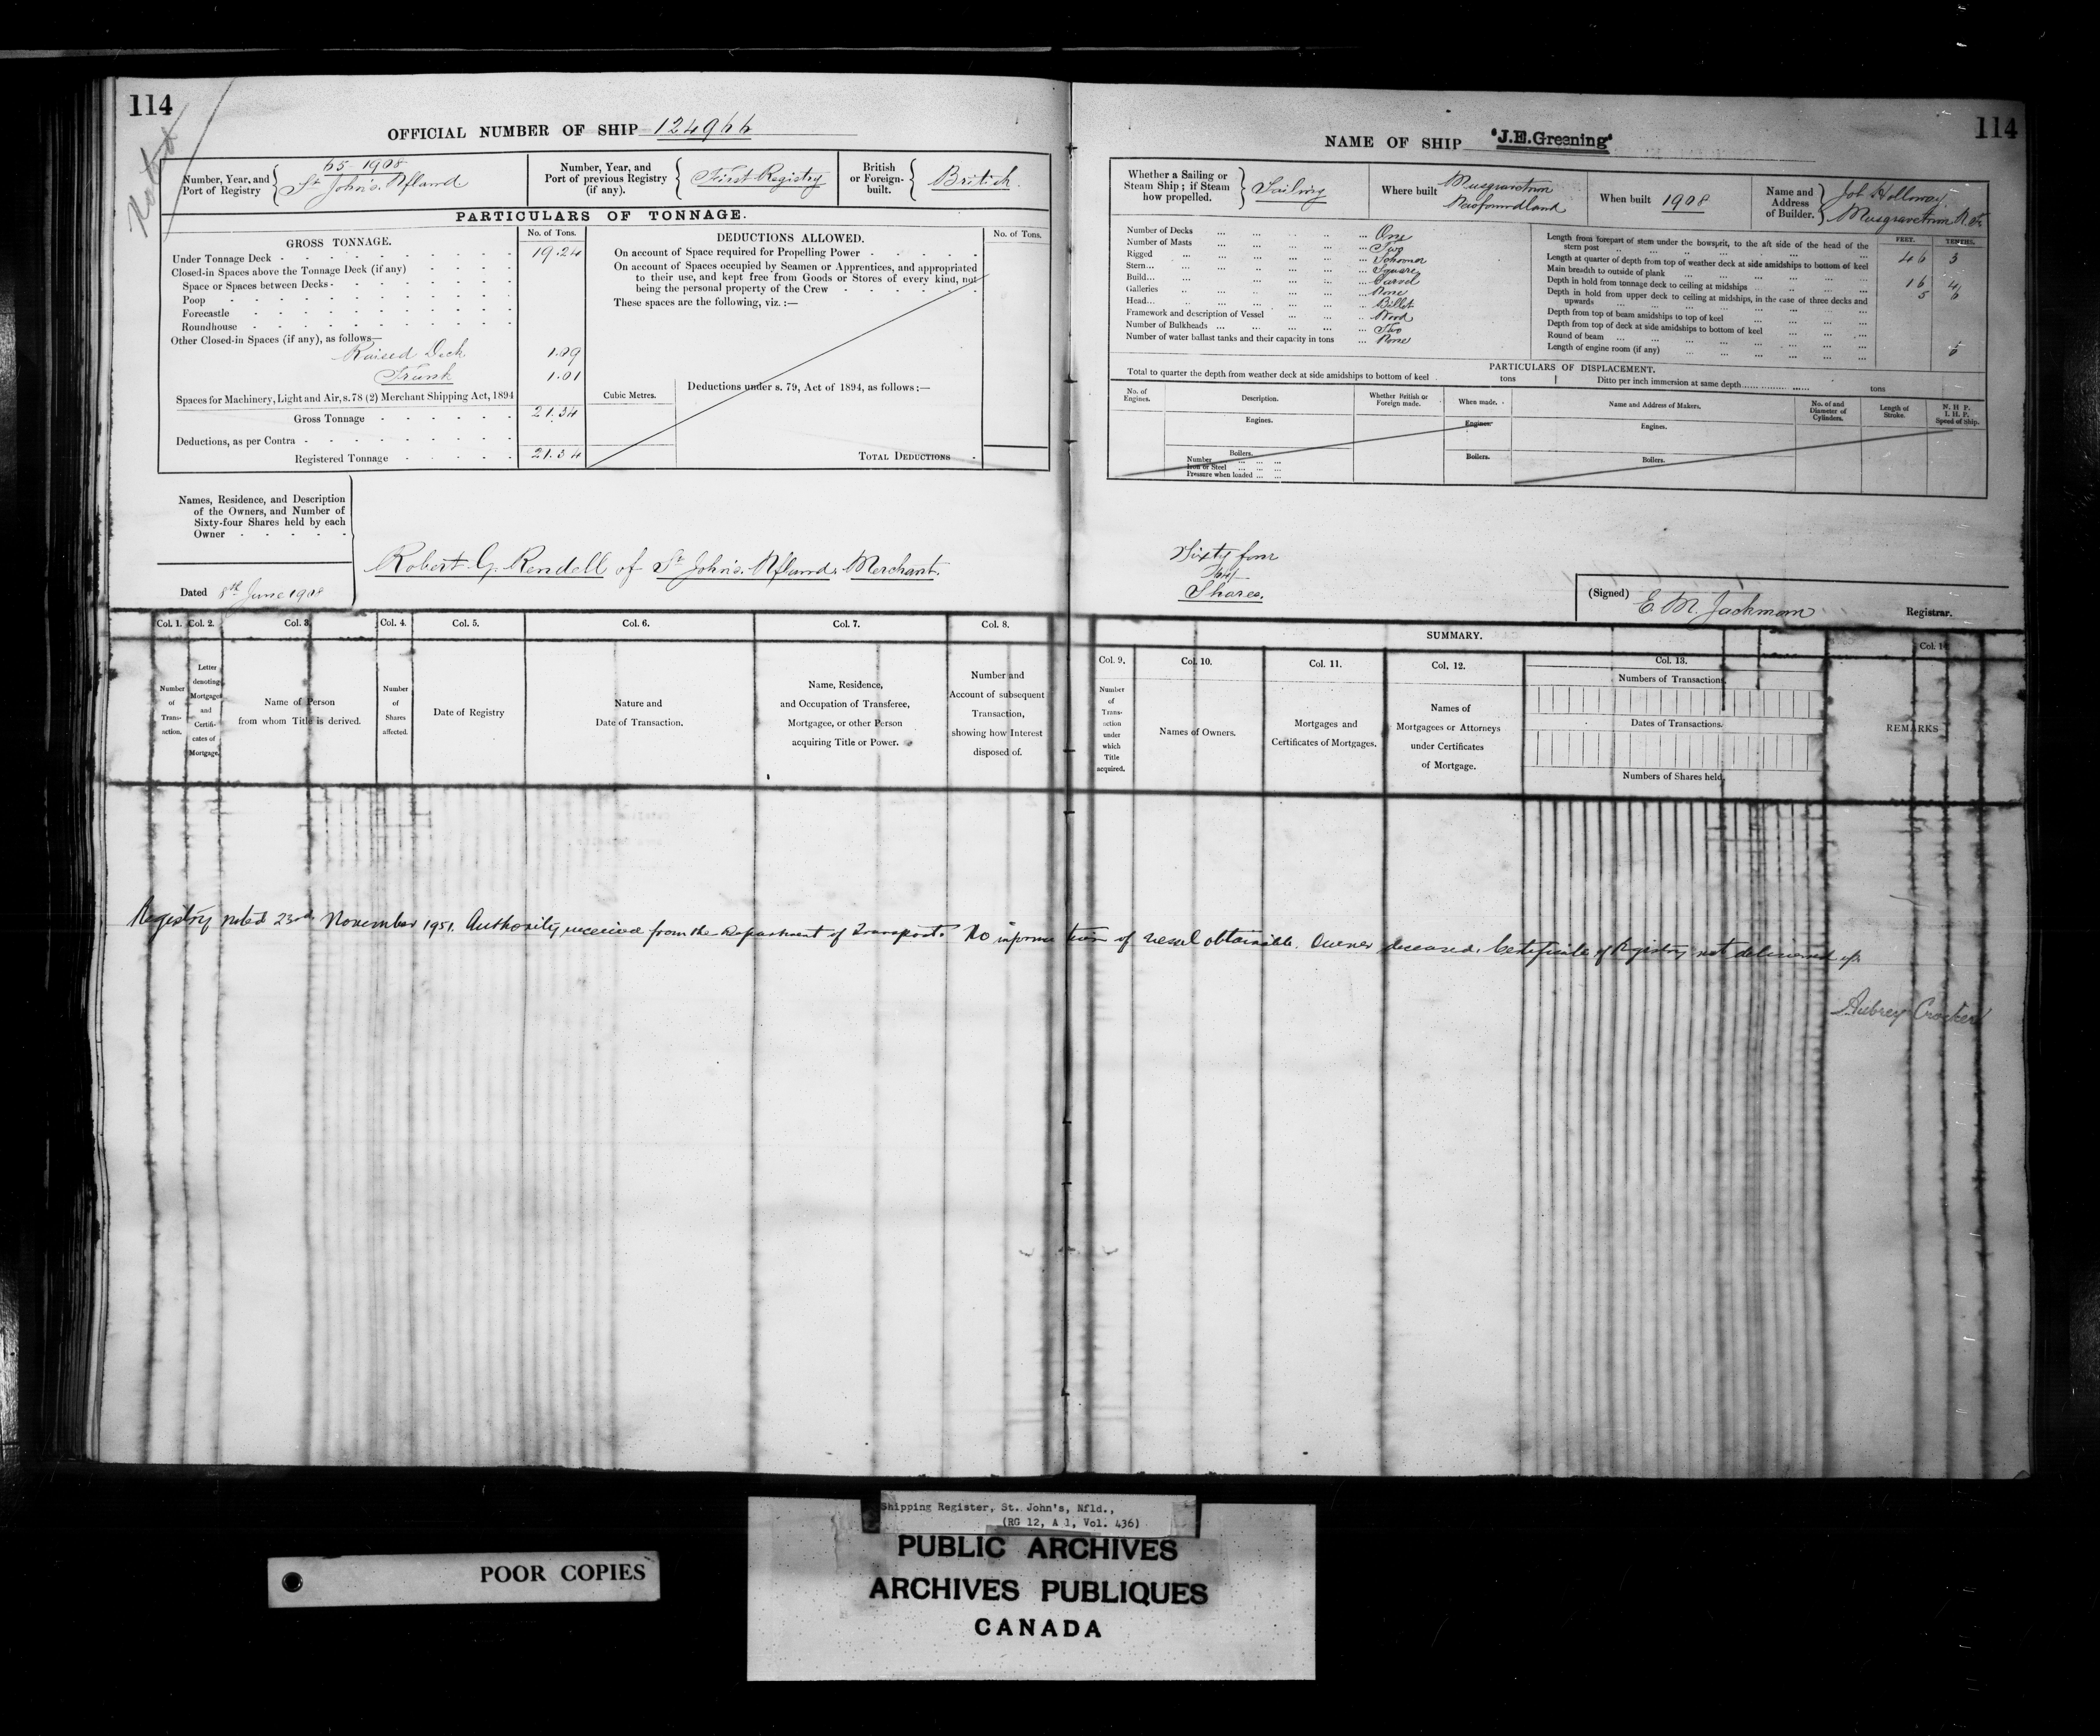 114
Noted
OFFICIAL NUMBER OF SHIP 124966
Number, Year, and Port of Registry
65-1908
St. John's. Nfland
Number, Year, and Port of previous Registry (if any).
First Registry
British or Foreign-built.
British.
PARTICULARS OF TONNAGE.
GROSS TONNAGE.
No. of Tons.
Under Tonnage Deck 19.24
Closed-in Spaces above the Tonnage Deck (if any)
Space or Spaces between Decks
Poop
Forecastle
Roundhouse
Other Closed-in Spaces (if any), as follows—
Raised Deck 1.09
Trunk 1.01
Spaces for Machinery, Light and Air, s. 78 (2) Merchant Shipping Act, 1894
Gross Tonnage 21.34
Deductions, as per Contra
Registered Tonnage 21.34
DEDUCTIONS ALLOWED.
No. of Tons.
On account of Space required for Propelling Power
On account of Spaces occupied by Seamen or Apprentices, and appropriated
to their use, and kept free from Goods or Stores of every kind, not
being the personal property of the Crew
These spaces are the following, viz. :—
Cubic Metres.
Deductions under s. 79, Act of 1894, as follows :—
TOTAL DEDUCTIONS
Names, Residence, and Description
of the Owners, and Number of
Sixty-four Shares held by each
Owner
Robert G. Rendell of St. John's. Nfland. Merchant.
Dated 8th June 1908
Col. 1. Col. 2. Col. 3. Col. 4. Col. 5. Col. 6. Col. 7. Col. 8.
Number of Trans-action.
Letter denoting Mortgages and Certifi-cates of Mortgage.
Name of Person from whom Title is derived.
Number of Shares affected.
Date of Registry
Nature and Date of Transaction.
Name, Residence, and Occupation of Transferee, Mortgagee, or other Person acquiring Title or Power.
Number and Account of subsequent Transaction, showing how Interest disposed of.
NAME OF SHIP "J.E.Greening"
114
Whether a Sailing or Steam Ship ; if Steam how propelled.
Sailing
Where built
Musgravetown
Newfoundland
When built 1908
Name and Address of Builder.
Job Holloway.
Musgravetown
Number of Decks One
Number of Masts Two
Rigged Schooner
Stern Square
Build Carvel
Galleries None
Head Billet
Framework and description of Vessel Wood
Number of Bulkheads Two
Number of water ballast tanks and their capacity in tons None
FEET. TENTHS.
Length from forepart of stem under the bowsprit, to the aft side of the head of the
stern post 46 3
Length at quarter of depth from top of weather deck at side amidships to bottom of keel
Main breadth to outside of plank 16 4
Depth in hold from tonnage deck to ceiling at midships 5 6
Depth in hold from upper deck to ceiling at midships, in the case of three decks and
upwards
Depth from top of beam amidships to top of keel
Depth from top of deck at side amidships to bottom of keel
Round of beam
Length of engine room (if any)
PARTICULARS OF DISPLACEMENT.
Total to quarter the depth from weather deck at side amidships to bottom of keel tons Ditto per inch immersion at same depth tons
No. of Engines.
Description.
Whether British or Foreign made.
When made.
Name and Address of Makers.
No. of and Diameter of Cylinders.
Length of Stroke.
N. H. P.
I. H. P.
Speed of Ship.
Engines. Engines. Engines.
Boilers. Boilers. Boilers.
Number
Iron or Steel
Pressure when loaded
Sixty four
Shares.
(Signed) E. M. Jackman Registrar.
SUMMARY.
Col. 9. Col. 10. Col. 11. Col. 12. Col. 13. Col. 1
Number of Trans-action under which Title acquired.
Names of Owners.
Mortgages and Certificates of Mortgages.
Names of Mortgagees or Attorneys under Certificates of Mortgage.
Numbers of Transactions
Dates of Transactions.
Numbers of Shares held
REMARKS
Registry noted 23rd November 1951. Authority received from the Department of Transport. No information of vessel obtainable. Owner deceased. Certificate of Registry not delivered up.
Aubrey Crocker
Shipping Register, St. John's, Nfld.,
(RG 12, A 1, Vol. 436)
POOR COPIES
PUBLIC ARCHIVES
ARCHIVES PUBLIQUES
CANADA